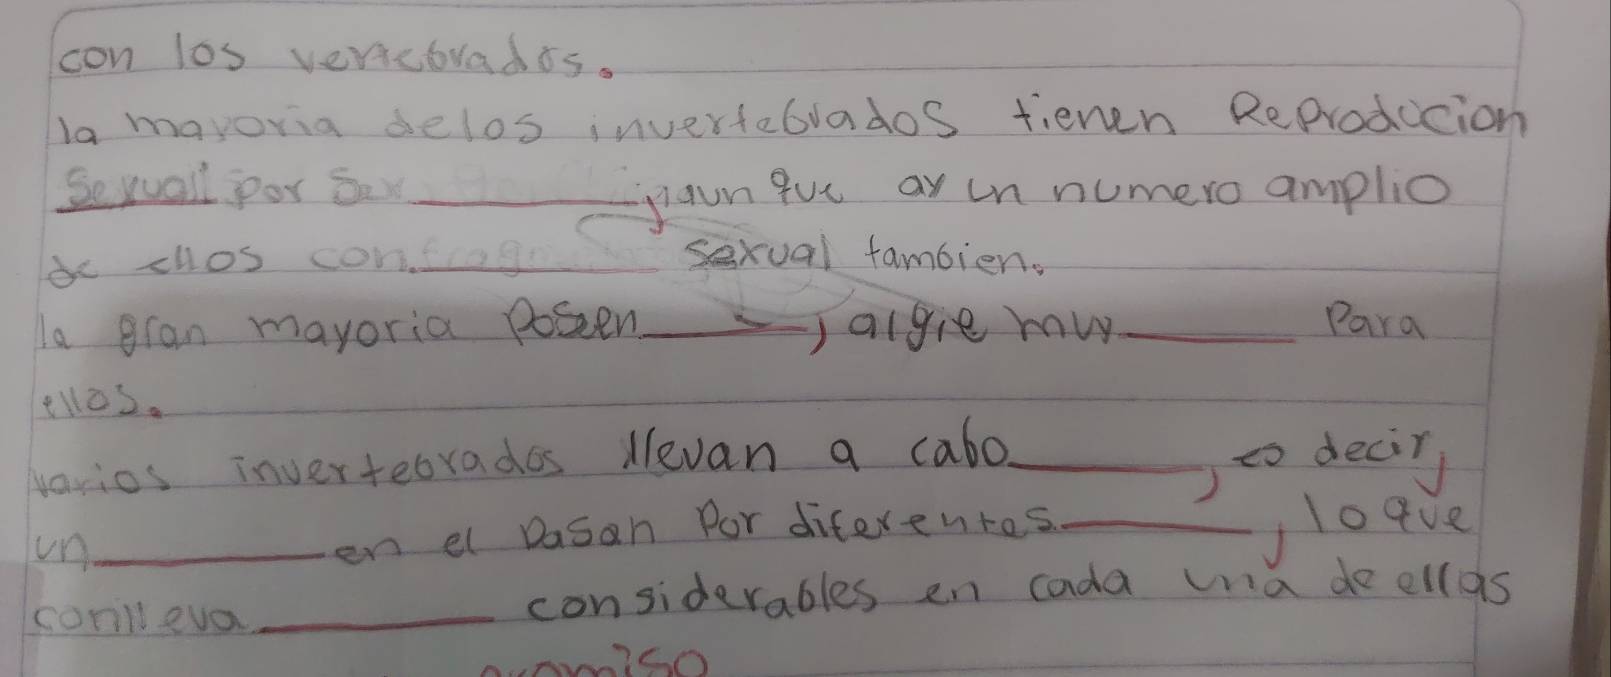 con los vertebrados.
la mayoria delos invertebrados tienen Reproducion
Sexuall por Ser ________, aun que ay un numero amplio
de ellos con ________ sexual tambien.
la gran mayoria Poseen ________, algie muy ________ Para
ellos.
varios invertebrados llevan a cabo ________, es decir,
un ________ en el pasan Por diferentes ________, lo que
conlleva ________ considerables en cada una de ellas